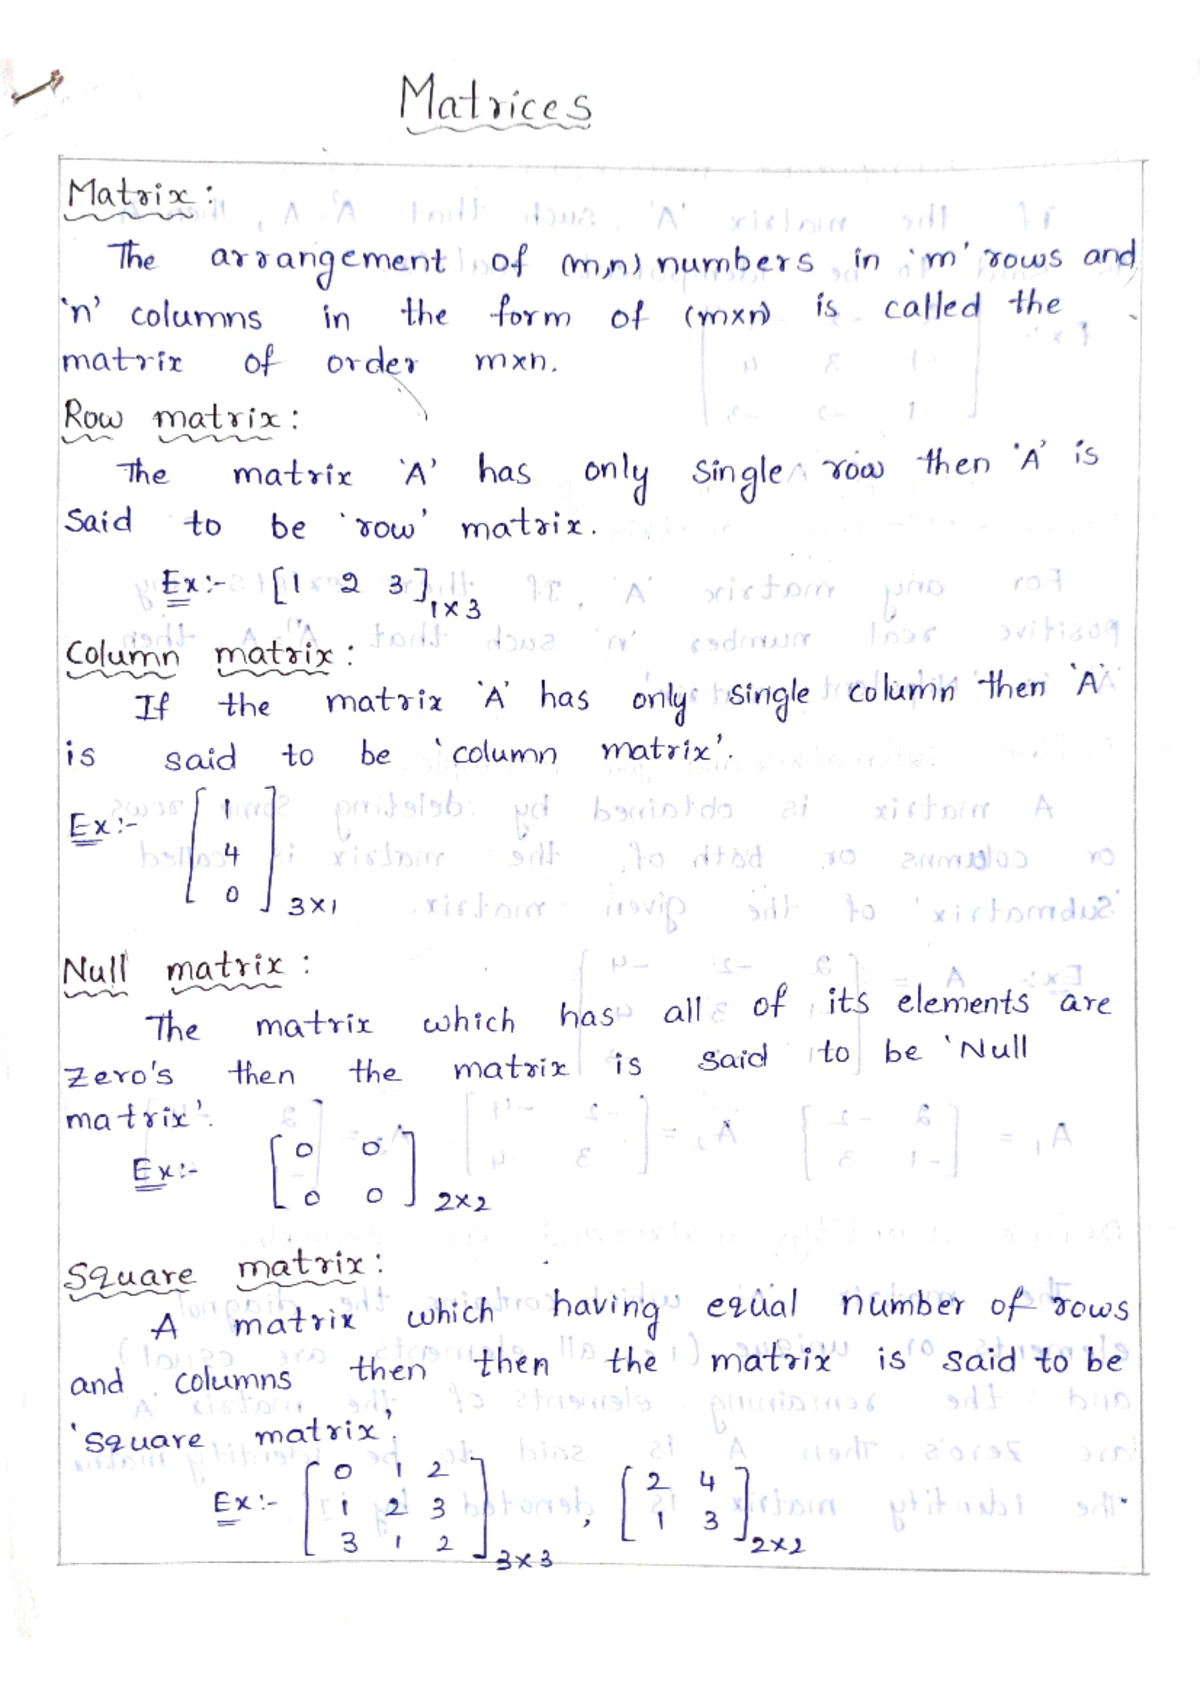 Matrices
Matrix:
The arrangement of (m,n) numbers in 'm' rows and
'n' columns in the form of (m×n) is called the
matrix of order m×n.
Row matrix:
The matrix 'A' has only single row then 'A' is
Said to be 'row' matrix.
Ex:- [1 2 3] 1×3
Column matrix:
If the matrix 'A' has only single column then 'A'
is said to be 'column matrix'.
1
Ex:-
4
0
3×1
Null matrix:
The matrix which has all of its elements are
Zero's then the matrix is said to be 'Null
matrix'.
0 0
Ex:-
0 0 2×2
Square matrix:
A matrix which having equal number of rows
and columns then then the matrix is said to be
'square matrix'.
0 1 2 2 4
Ex:- 1 2 3 , 1 3
3 1 2 3×3 2×2